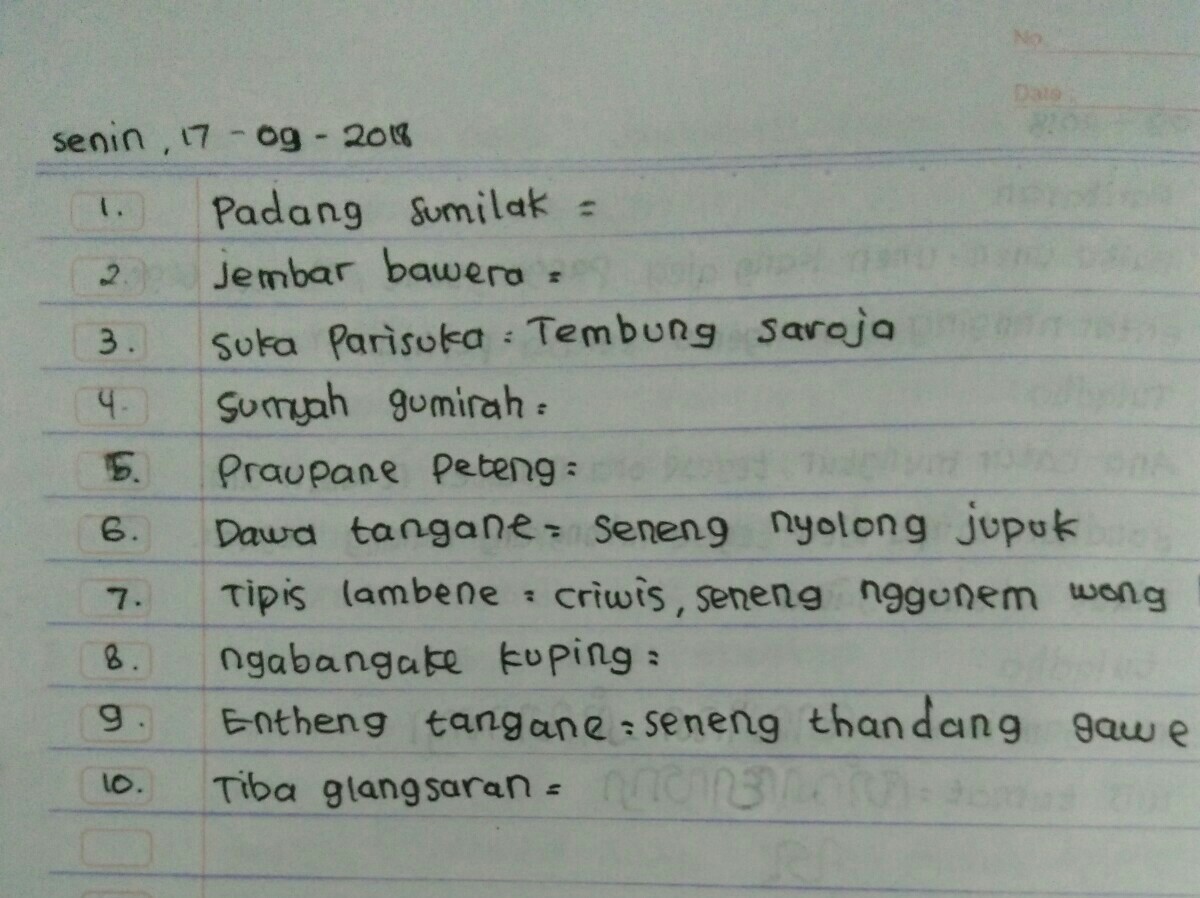 No.
Date :
senin, 17 - 09 - 2018
1. Padang sumilak =
2. jembar bawera =
3. suka Parisuka = Tembung saroja
4. Sumyah gumirah =
5. Praupane Peteng =
6. Dawa tangane = seneng nyolong jupuk
7. Tipis lambene = criwis, seneng nggunem wong
8. ngabangake kuping =
9. Entheng tangane = seneng thandang gawe
10. Tiba glangsaran =